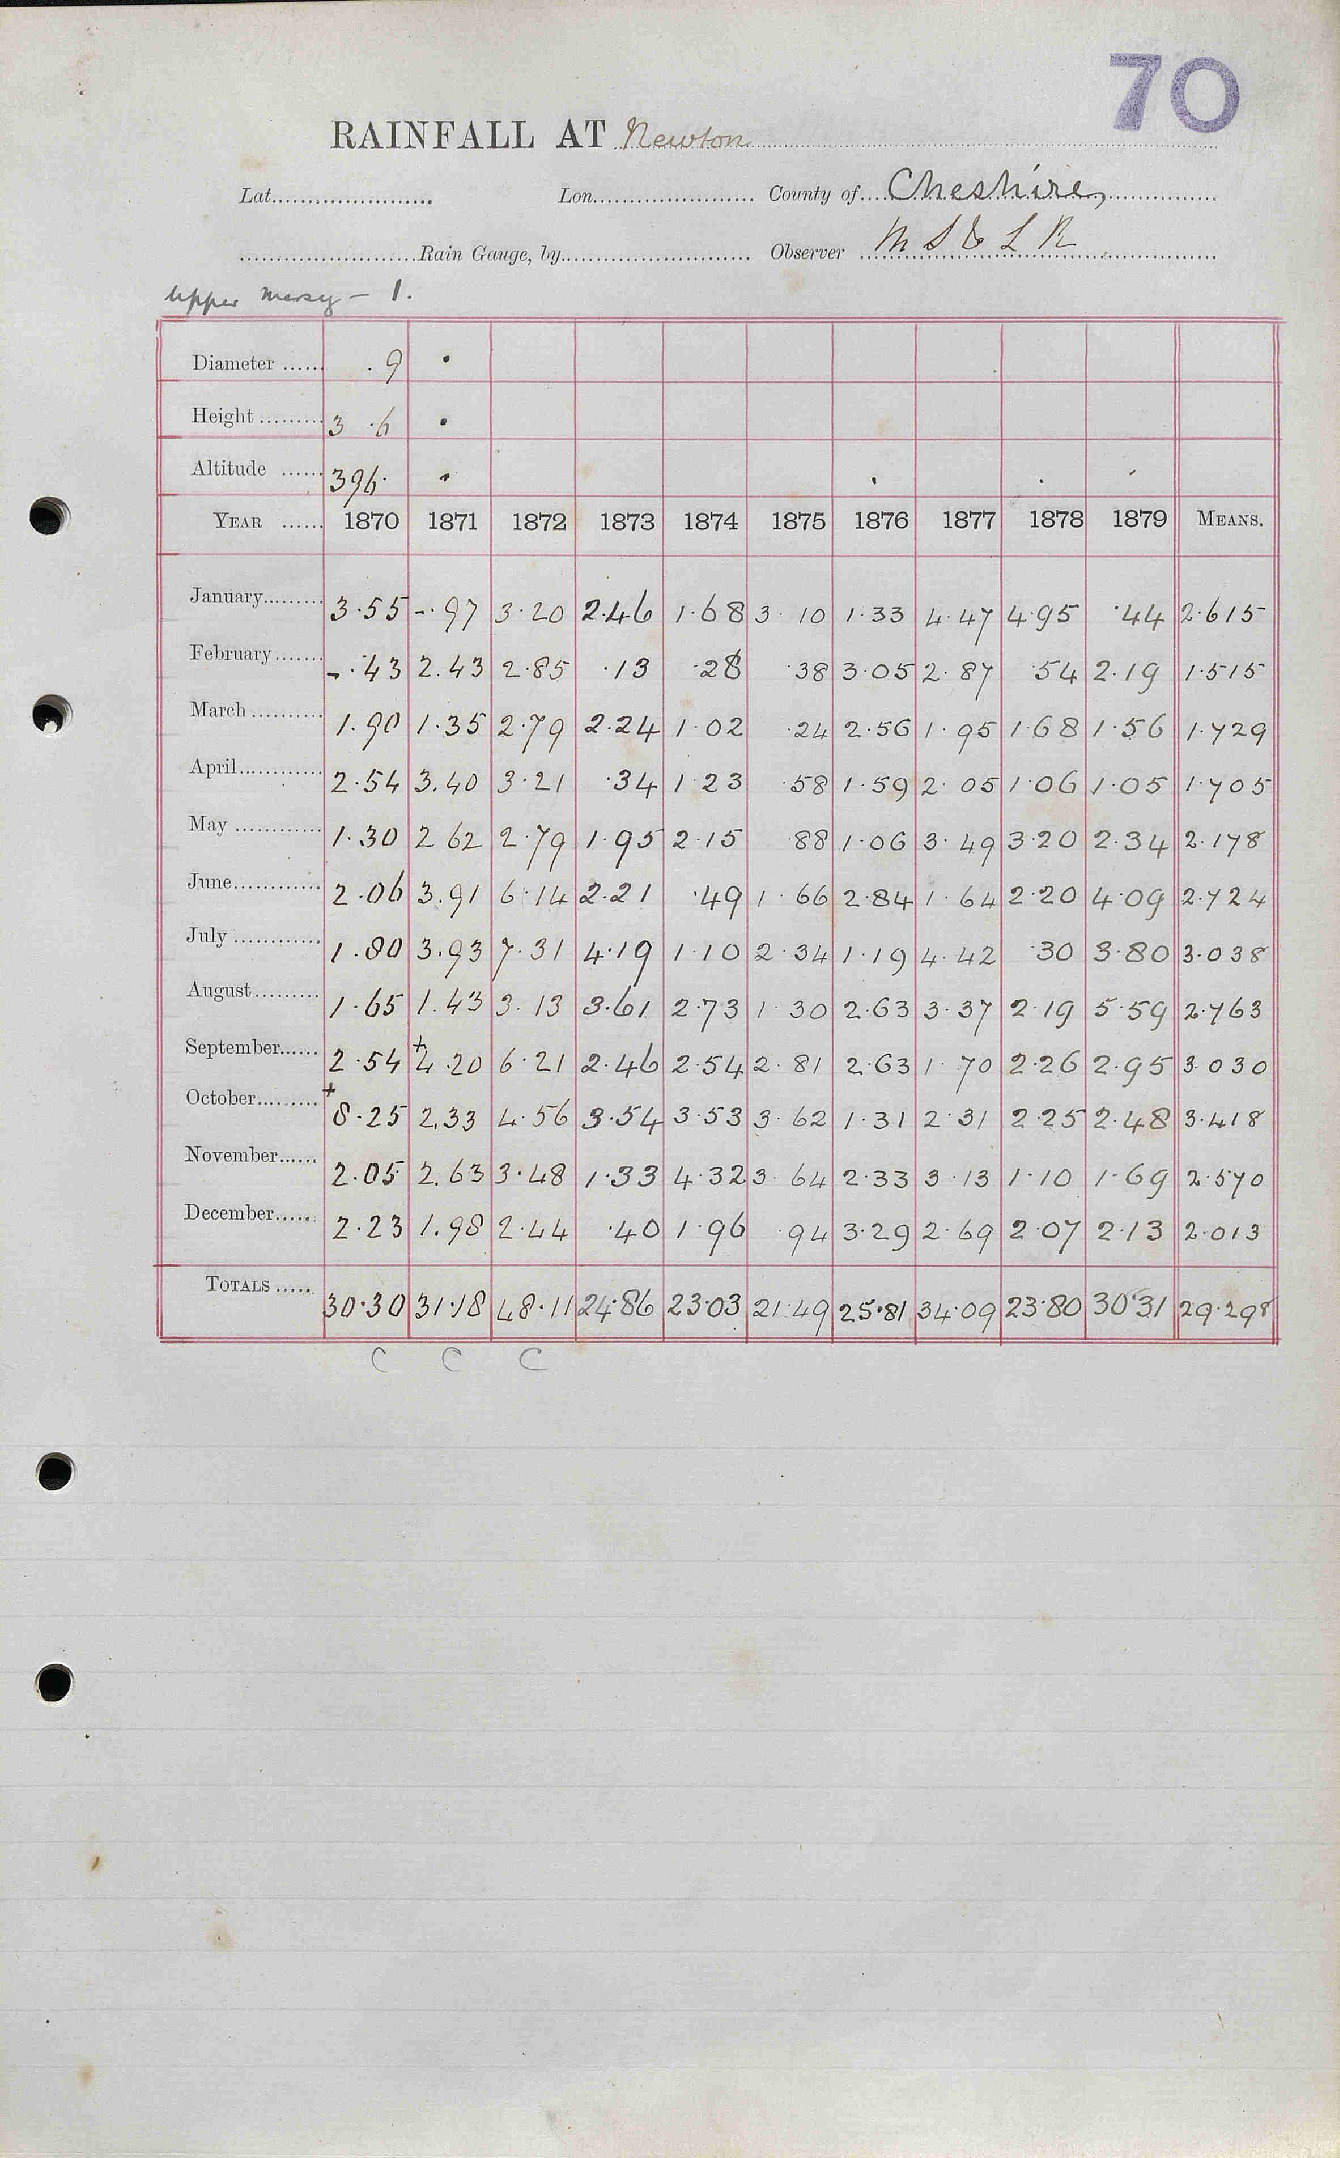 70
RAINFALL AT Newton
Lat. Lon. County of Cheshire,
Rain Gauge, by Observer M S & L R
Upper Mersey - 1.
Diameter .9 •
Height 3 .6 •
Altitude 396. •
YEAR 1870 1871 1872 1873 1874 1875 1876 1877 1878 1879 MEANS.
January 3.55 -.97 3.20 2.46 1.68 3.10 1.33 4.47 4.95 .44 2.615
February -.43 2.43 2.85 .13 .28 .38 3.05 2.87 .54 2.19 1.515
March 1.90 1.35 2.79 2.24 1.02 .24 2.56 1.95 1.68 1.56 1.729
April 2.54 3.40 3.21 .34 1.23 .58 1.59 2.05 1.06 1.05 1.705
May 1.30 2.62 2.79 1.95 2.15 .88 1.06 3.49 3.20 2.34 2.178
June 2.06 3.91 6.14 2.21 .49 1.66 2.84 1.64 2.20 4.09 2.724
July 1.80 3.93 7.31 4.19 1.10 2.34 1.19 4.42 .30 3.80 3.038
August 1.65 1.43 3.13 3.61 2.73 1.30 2.63 3.37 2.19 5.59 2.763
September 2.54 +4.20 6.21 2.46 2.54 2.81 2.63 1.70 2.26 2.95 3.030
October +8.25 2.33 4.56 3.54 3.53 3.62 1.31 2.31 2.25 2.48 3.418
November 2.05 2.63 3.48 1.33 4.32 3.64 2.33 3.13 1.10 1.69 2.570
December 2.23 1.98 2.44 .40 1.96 .94 3.29 2.69 2.07 2.13 2.013
TOTALS 30.30 31.18 48.11 24.86 23.03 21.49 25.81 34.09 23.80 30.31 29.298
C C C